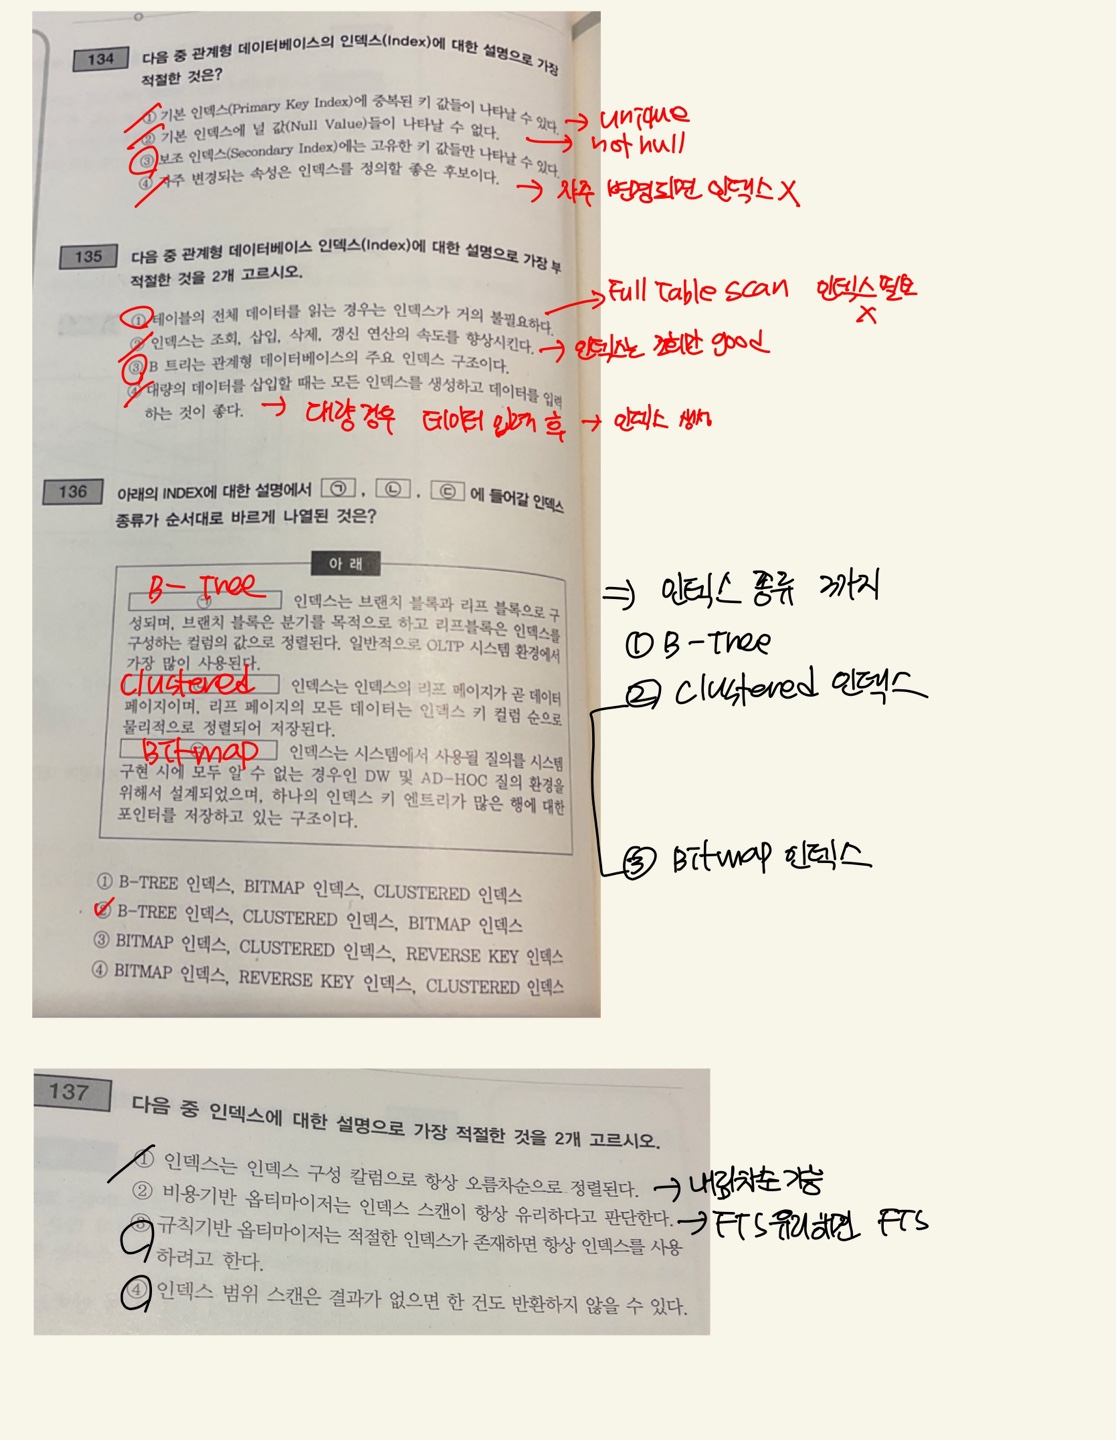 134 다음 중 관계형 데이터베이스의 인덱스(Index)에 대한 설명으로 가장
적절한 것은?
① 기본 인덱스(Primary Key Index)에 중복된 키 값들이 나타날 수 있다. → unique
② 기본 인덱스에 널 값(Null Value)들이 나타날 수 없다. → not null
③ 보조 인덱스(Secondary Index)에는 고유한 키 값들만 나타날 수 있다.
④ 자주 변경되는 속성은 인덱스를 정의할 좋은 후보이다. → 자주 변경되면 인덱스 X
135 다음 중 관계형 데이터베이스 인덱스(Index)에 대한 설명으로 가장 부
적절한 것을 2개 고르시오.
① 테이블의 전체 데이터를 읽는 경우는 인덱스가 거의 불필요하다. → Full Table scan 인덱스 필요
X
② 인덱스는 조회, 삽입, 삭제, 갱신 연산의 속도를 향상시킨다. → 인덱스는 조회만 good
③ B 트리는 관계형 데이터베이스의 주요 인덱스 구조이다.
④ 대량의 데이터를 삽입할 때는 모든 인덱스를 생성하고 데이터를 입력
하는 것이 좋다. → 대량 경우 데이터 입력 후 → 인덱스 생성
136 아래의 INDEX에 대한 설명에서 ㉠, ㉡, ㉢에 들어갈 인덱스
종류가 순서대로 바르게 나열된 것은?
아 래
B-Tree
㉠ 인덱스는 브랜치 블록과 리프 블록으로 구
성되며, 브랜치 블록은 분기를 목적으로 하고 리프블록은 인덱스를
구성하는 컬럼의 값으로 정렬된다. 일반적으로 OLTP 시스템 환경에서
가장 많이 사용된다.
Clustered 인덱스는 인덱스의 리프 페이지가 곧 데이터
페이지이며, 리프 페이지의 모든 데이터는 인덱스 키 컬럼 순으로
물리적으로 정렬되어 저장된다.
Bitmap 인덱스는 시스템에서 사용될 질의를 시스템
구현 시에 모두 알 수 없는 경우인 DW 및 AD-HOC 질의 환경을
위해서 설계되었으며, 하나의 인덱스 키 엔트리가 많은 행에 대한
포인터를 저장하고 있는 구조이다.
⇒ 인덱스 종류 3가지
① B-Tree
② Clustered 인덱스
③ Bitmap 인덱스
① B-TREE 인덱스, BITMAP 인덱스, CLUSTERED 인덱스
② B-TREE 인덱스, CLUSTERED 인덱스, BITMAP 인덱스
③ BITMAP 인덱스, CLUSTERED 인덱스, REVERSE KEY 인덱스
④ BITMAP 인덱스, REVERSE KEY 인덱스, CLUSTERED 인덱스
137 다음 중 인덱스에 대한 설명으로 가장 적절한 것을 2개 고르시오.
① 인덱스는 인덱스 구성 칼럼으로 항상 오름차순으로 정렬된다. → 내림차순 가능
② 비용기반 옵티마이저는 인덱스 스캔이 항상 유리하다고 판단한다. → FTS 유리하면 FTS
③ 규칙기반 옵티마이저는 적절한 인덱스가 존재하면 항상 인덱스를 사용
하려고 한다.
④ 인덱스 범위 스캔은 결과가 없으면 한 건도 반환하지 않을 수 있다.